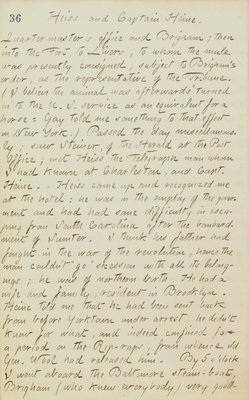 36 Heiss and Captain Heine.
Quartermaster's office and Brigham; then
into the Fort, to Livors, to whom the mule
was presently consigned, subject to Brigham's
order, as the representative of the Tribune.
(I believe the animal was afterwards turned
in to the U. S. service as an equivalent for a
horse = Gay told me something to that effect
in New York.) Passed the day miscellaneous-
ly; saw Steiner, of the Herald at the Post
Office; met Heiss the telegraph man whom
I had known at Charleston, and Capt.
Heine. Heiss came up and recognized me
at the hotel: he was in the employ of the govern-
ment and had had some difficulty in esca-
ping from South Carolina after the bombard-
ment of Sumter. I think his father had
fought in the war of the revolution, hence the
man couldn't "go" secession with all its belong-
ings; he was of northern birth. He had a
wife and family, resident in Brooklyn.
Heine told me that he had been sent back
from before Yorktown under arrest, he didn't
know for what, and indeed confined for
a period on the Rip-raps, from whence old
Gen. Wool had released him. By 5 o'clock
I went aboard the Baltimore steam-boat,
Brigham (who knew everybody) very good-